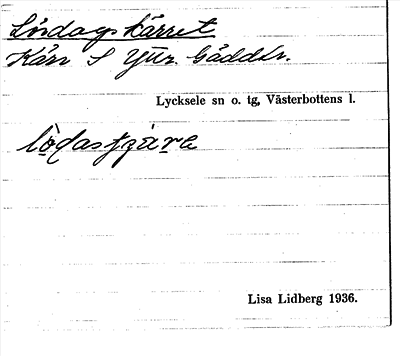 Lördagskärret
Kärr S Yttr. Gäddtr.
Lycksele sn o. tg, Västerbottens l.
lò̱ḍasʃɟäre
Lisa Lidberg 1936.